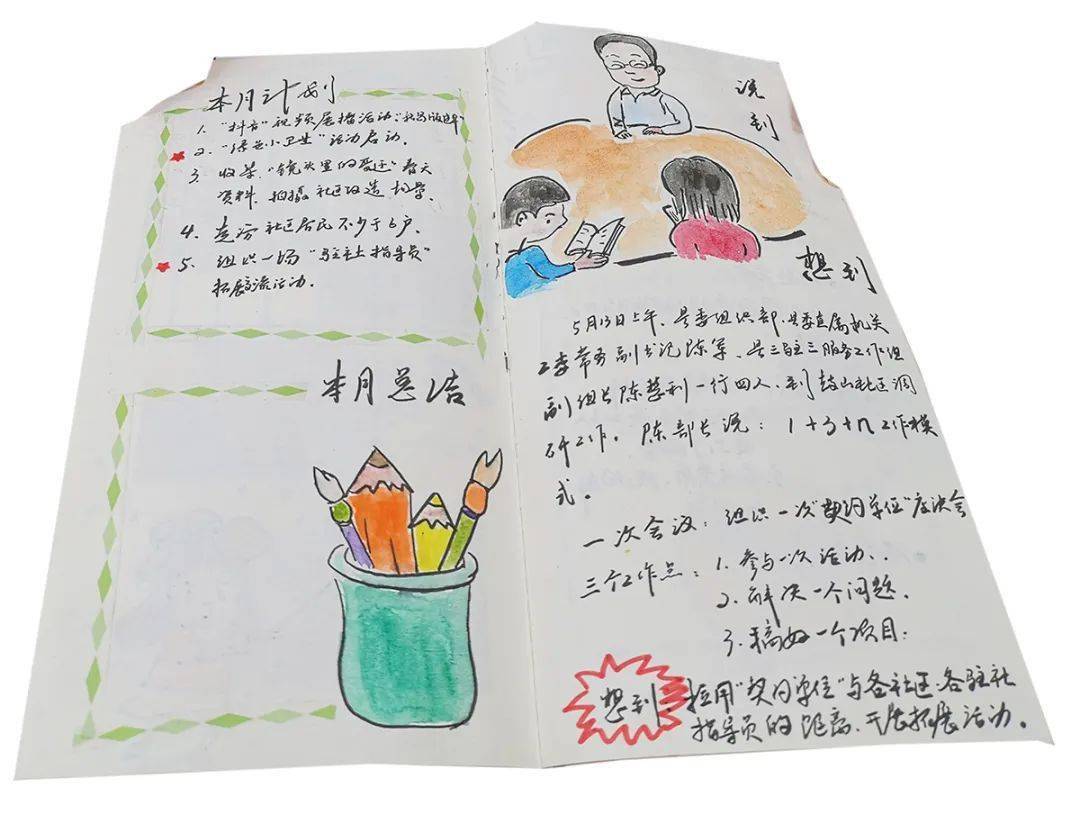 本月计划
1. "抖音"视频展播活动:
2. "绿芝小卫士"活动启动。
3. 收集"镜头里的变迁"春天
资料、拍摄社区改造
4. 走访社区居民不少于6户.
5. 组织一场"驻社指导员"
拓展交流活动.
本月总结
说到
想到
5月13日上午、县委组织部、县委直属机关
工委常务副书记陈军、县三驻三服务工作组
副组长陈慧利一行四人、到鼓山社区调
研工作。陈部长说:1+3+n工作模
式。
一次会议:组织一次"契约单位"座谈会
三个工作点:1. 参与一次活动..
2. 解决一个问题.
3. 搞好一个项目.
想到:拉用"契约单位"与各社区、各驻社
指导员的距离、开展拓展活动。